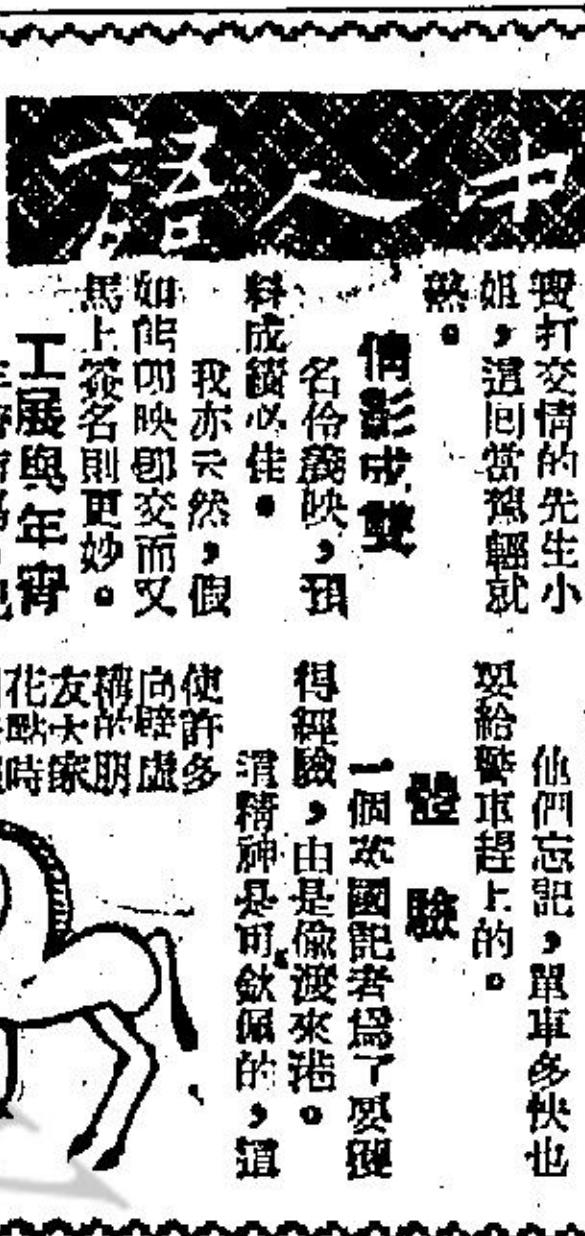 中人語
要打交情的先生小
姐，這回當駕輕就
熟。
倩影成雙
名伶義映，預
料成績必佳。
我亦云然，假
如能即映即交而又
馬上簽名則更妙。
工展與年宵
他們忘記，單車多快也
要給警車趕上的。
體驗
一個英國記者為了要獲
得經驗，由是偷渡來港。
這精神是可欽佩的，
使許多
向壁虛
構的朋
友大家
花點時